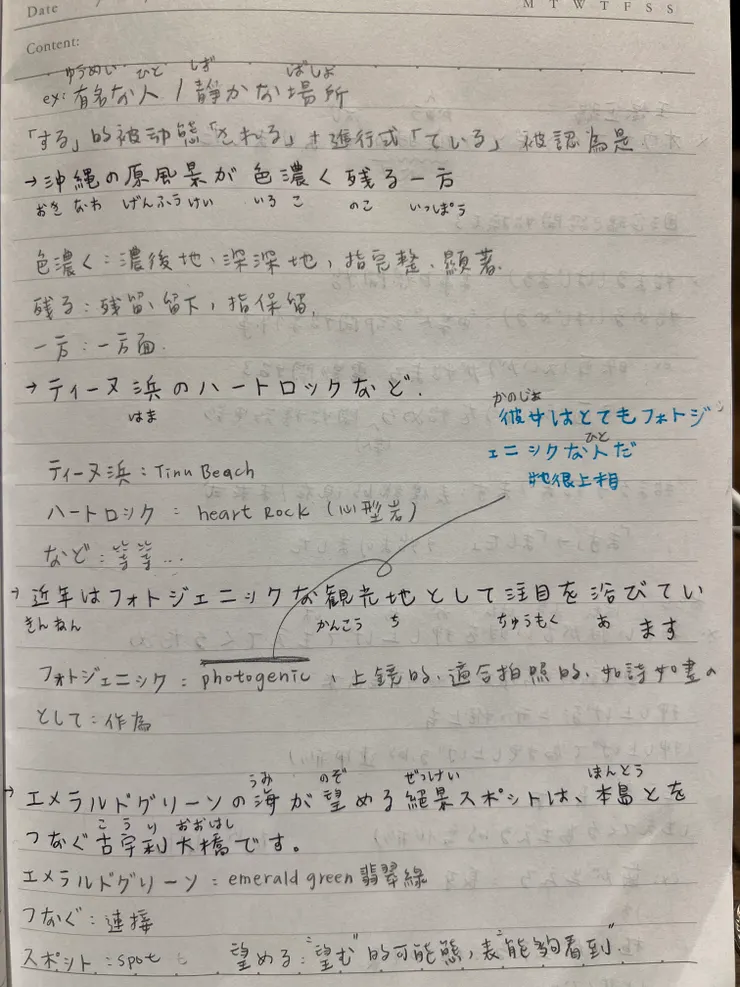 Date
M T W T F S S
Content:
ゆうめい ひと しず ばしょ
ex: 有名な人 / 静かな場所
「する」的被动態「される」+進行式「ている」被認為是
→沖縄の原風景が色濃く残る一方
おき なわ げんふうけい いろ こ のこ いっぽう
色濃く：濃後地、深深地，指完整、顯著.
残る：残留、留下，指保留.
一方：一方面.
→ティーヌ浜のハートロックなど.
はま
かのじょ
彼女はとてもフォトジ
ェニックな人だ
ひと
她很上相
ティーヌ浜：Tinu Beach
ハートロック：heart Rock (心型岩)
など：等等...
→近年はフォトジェニックな観光地として注目を浴びてい
きんねん かんこう ち ちゅうもく あ ます
フォトジェニック：photogenic、上鏡的、適合拍照的、如詩如畫の
として：作為
うみ のぞ ぜっけい ほんとう
→エメラルドグリーンの海が望める絕景スポットは、本島とを
こ う り おおはし
つなぐ古宇利大橋です。
エメラルドグリーン：emerald green 翡翠綠
つなぐ：連接
スポット：spot 望める："望む"的可能態，表"能夠看到".